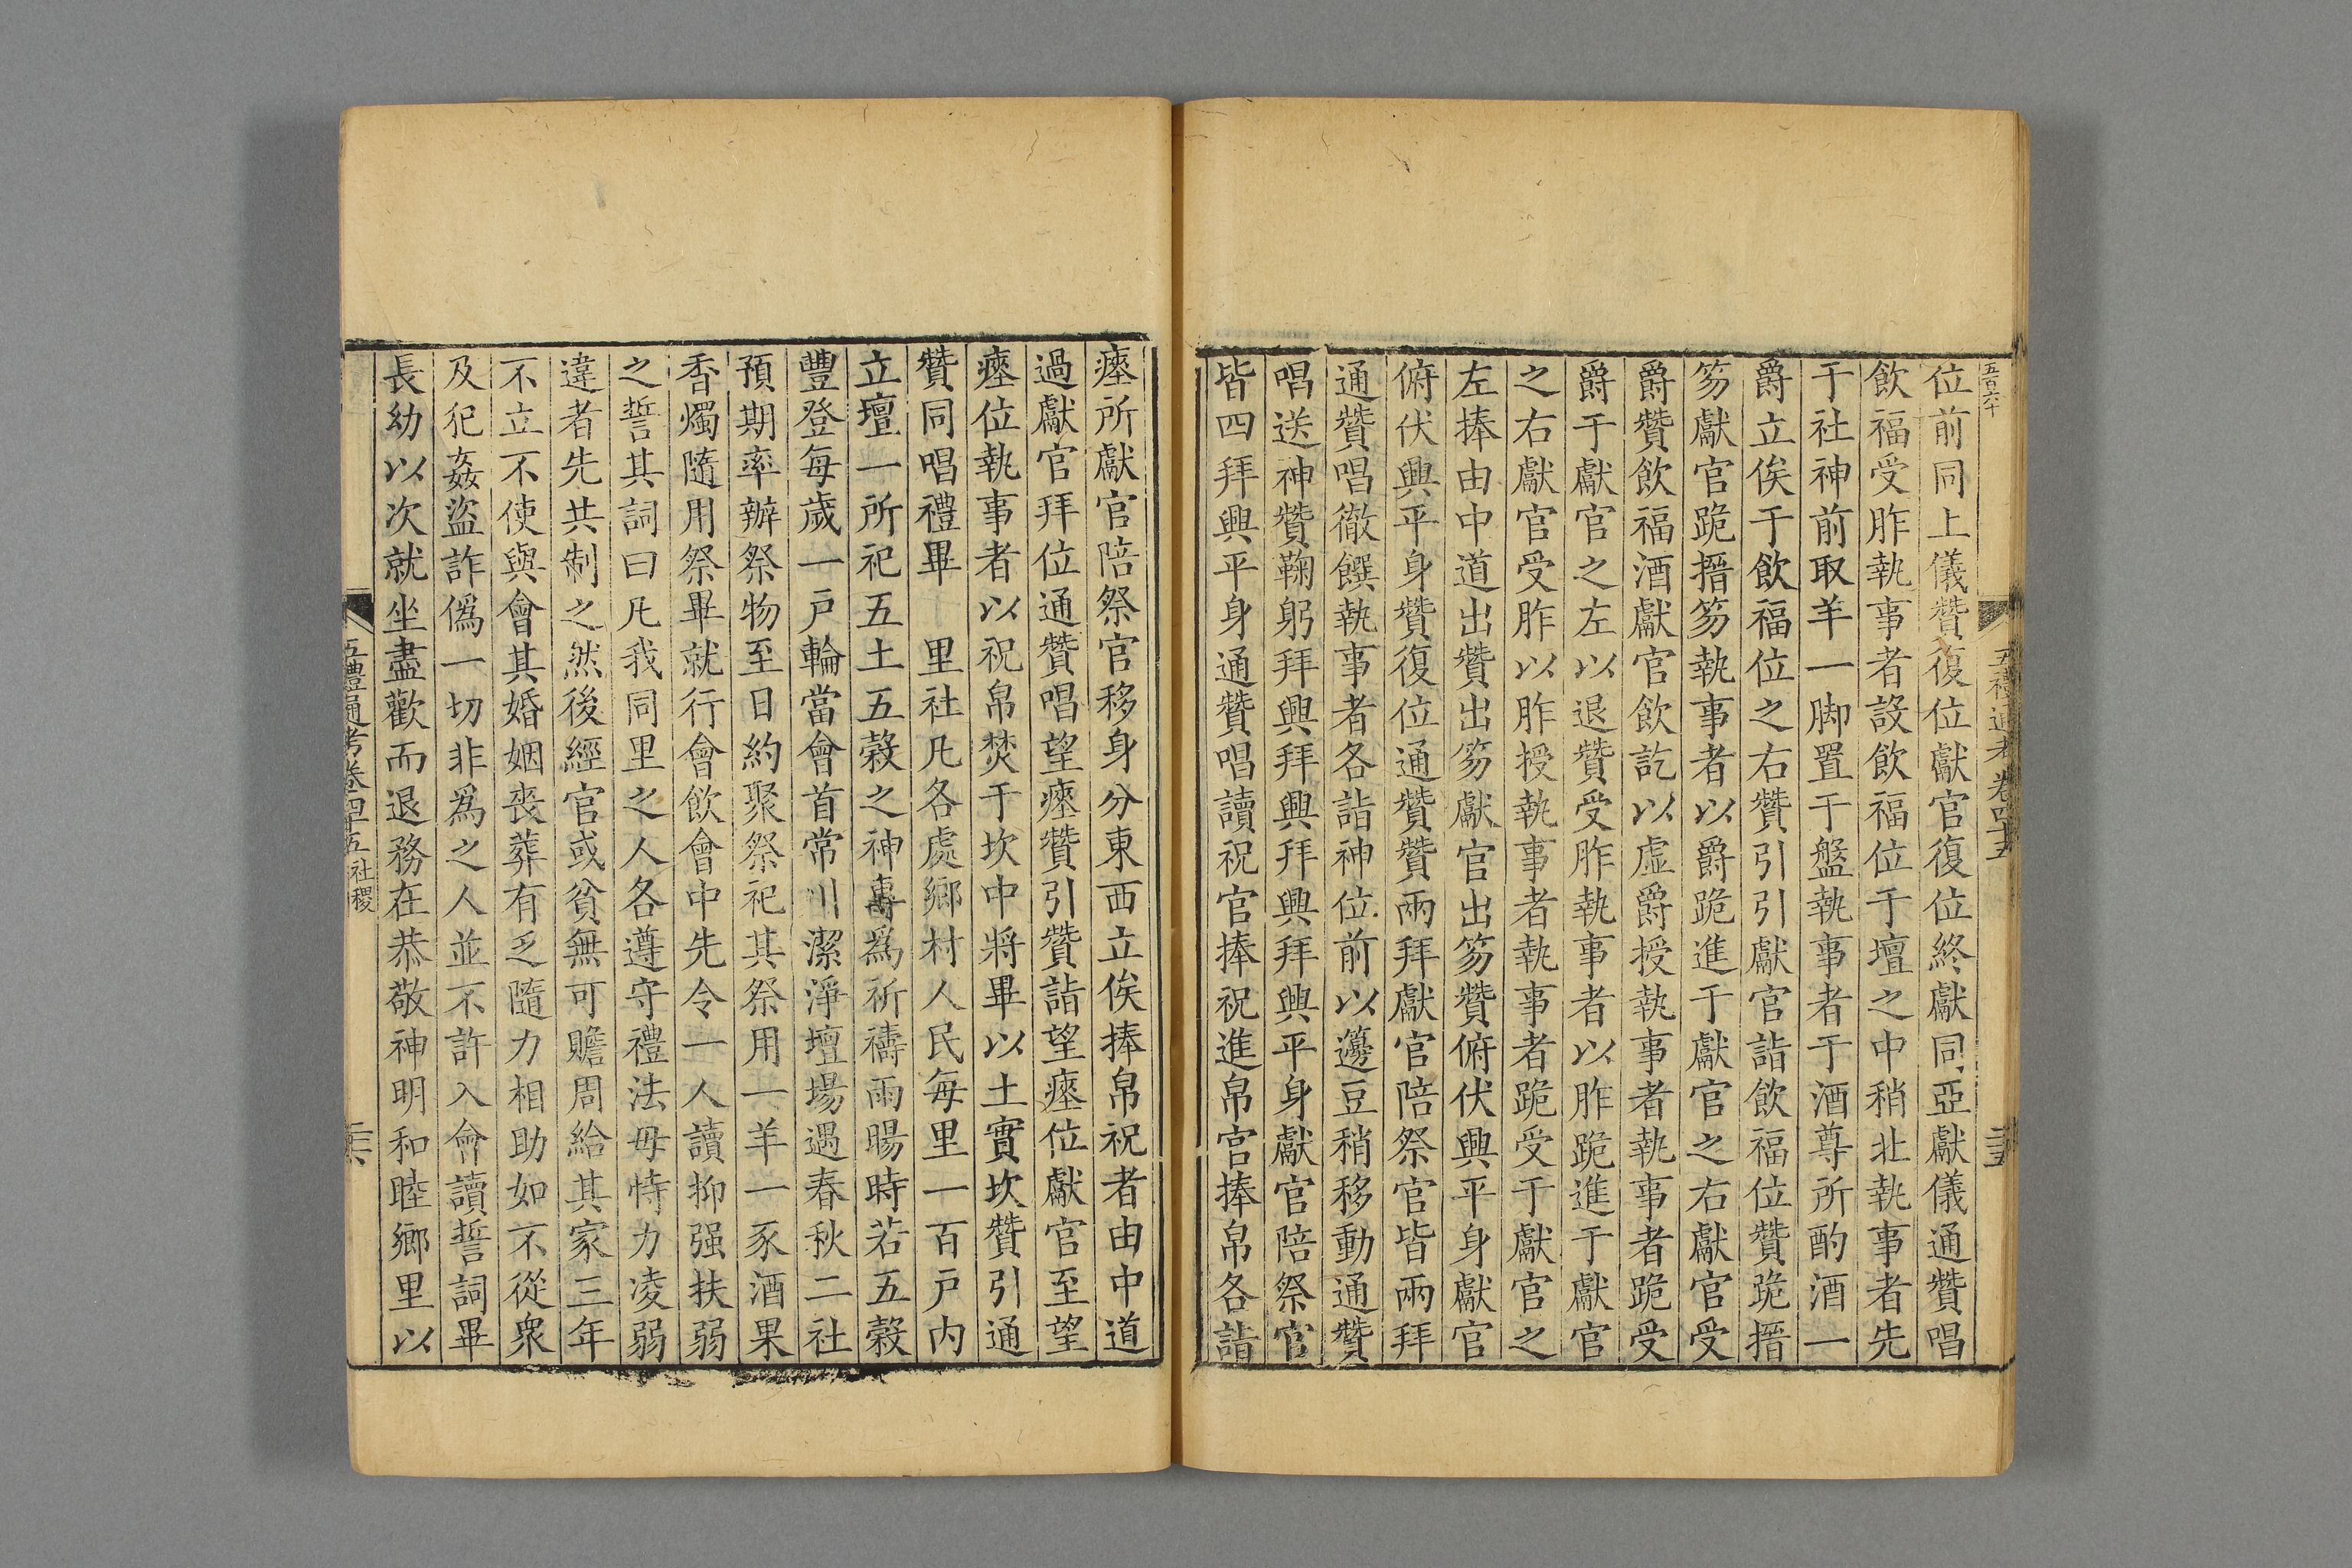 五百六十
五禮通考卷四十五
三十五
位前同上儀贊復位獻官復位終獻同亞獻儀通贊唱
飲福受胙執事者設飲福位于壇之中稍北執事者先
于社神前取羊一脚置于盤執事者于酒尊所酌酒一
爵立俟于飲福位之右贊引引獻官詣飲福位贊跪搢
笏獻官跪搢笏執事者以爵跪進于獻官之右獻官受
爵贊飲福酒獻官飲訖以虛爵授執事者執事者跪受
爵于獻官之左以退贊受胙執事者以胙跪進于獻官
之右獻官受胙以胙授執事者執事者跪受于獻官之
左捧由中道出贊出笏獻官出笏贊俯伏興平身獻官
俯伏興平身贊復位通贊贊兩拜獻官陪祭官皆兩拜
通贊唱徹饌執事者各詣神位前以籩豆稍移動通贊
唱送神贊鞠躬拜興拜興拜興拜興平身獻官陪祭官
皆四拜興平身通贊唱讀祝官捧祝進帛官捧帛各詣
瘞所獻官陪祭官移身分東西立俟捧帛祝者由中道
過獻官拜位通贊唱望瘞贊引贊詣望瘞位獻官至望
瘞位執事者以祝帛焚于坎中將畢以土實坎贊引通
贊同唱禮畢　里社凡各處鄉村人民每里一百戶內
立壇一所祀五土五穀之神專爲祈禱雨暘時若五穀
豐登每歲一戶輪當會首常川潔淨壇場遇春秋二社
預期率辦祭物至日約聚祭祀其祭用一羊一豕酒果
香燭隨用祭畢就行會飲會中先令一人讀抑强扶弱
之誓其詞曰凡我同里之人各遵守禮法毋恃力凌弱
違者先共制之然後經官或貧無可贍周給其家三年
不立不使與會其婚姻喪葬有乏隨力相助如不從衆
及犯姦盜詐僞一切非爲之人並不許入會讀誓詞畢
長幼以次就坐盡歡而退務在恭敬神明和睦鄉里以
五禮通考卷四十五 社稷
三十六